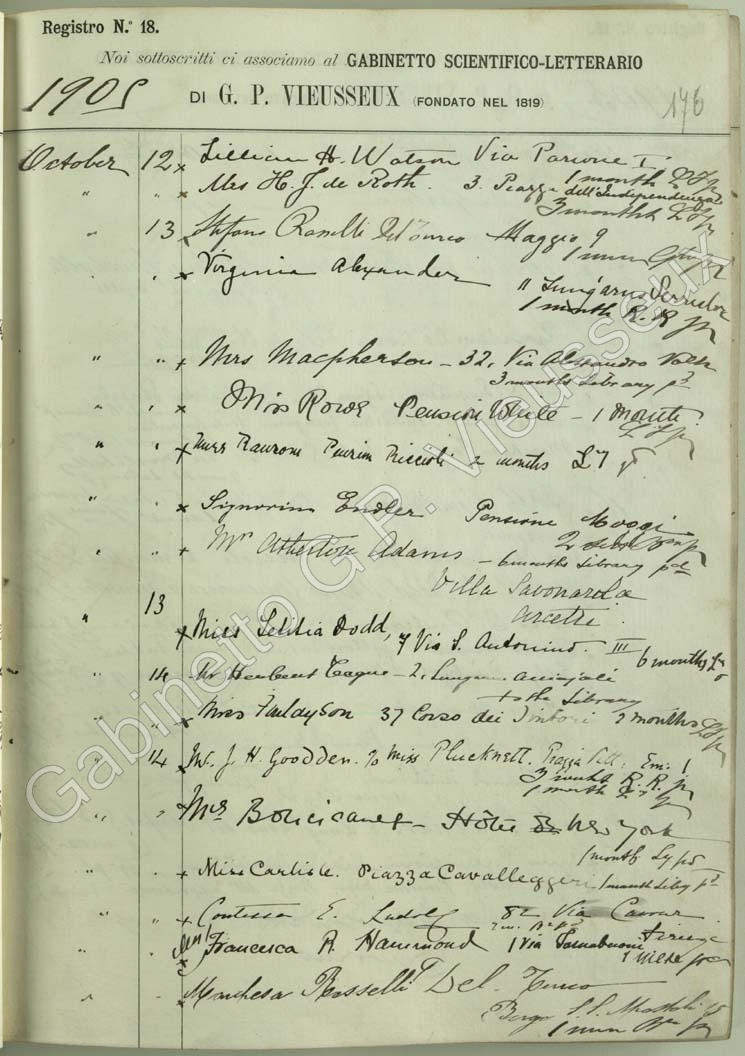 Registro N.° 18.
Noi sottoscritti ci associamo al GABINETTO SCIENTIFICO-LETTERARIO
1905
DI G. P. VIEUSSEUX (FONDATO NEL 1819)
176
October 12 x Lillian H. Watson Via Parione 1.
1 month
" x Mrs H. J. de Roth. 3. Piazza dell'Independenza
3 months
" 13 Stefano Rosselli Del Turco Maggio 9
" " x Virginia Alexander
11 Lungarno Serristori
1 month R. R
" " x Mrs Macpherson - 32, Via Alessandro Volta
3 months Library pd
" " x Miss Rowe Pension White - 1 Month
" " x 2 months
" x Signorina Endler Pensione Moggi
" " x Mrs Atherton Adams - 6 months Library pd
Villa Savonarola
Arcetri.
" 13
x Miss Letitia Dodd, 7 Via S. Antonino. III 6 months
" 14 Mr Herbert Teague - 2, Lungarno Acciajoli
to the Library
" " Miss Finlayson 37 Corso dei Tintori 2 months
" 14 x Mr. J. H. Goodden. c/o Miss Plucknett. Piazza Pitti
3 months R. R.
1 month
" " x Hôtel New York
1 month
" " x Miss Carlisle. Piazza Cavalleggeri 1 month Liby pd
" " x Contessa E. Ludolf 82 Via Cavour
Firenze
" " x Francesca R. Hammond 1 Via Tornabuoni
1 mese
" x Marchesa Rosselli Del Turco
Borgo S.S. Apostoli
Gabinetto G.P. Vieusseux